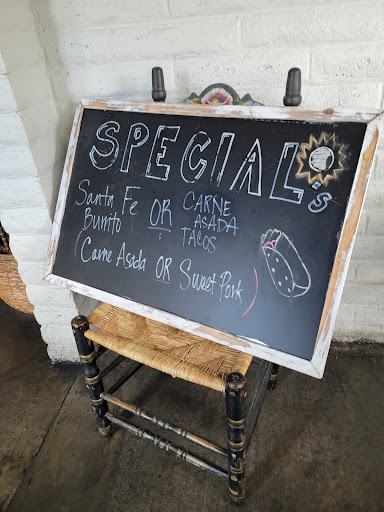 SPECIAL's
Santa Fe Burrito OR CARNE ASADA TACOS
(Carne Asada OR Sweet Pork)